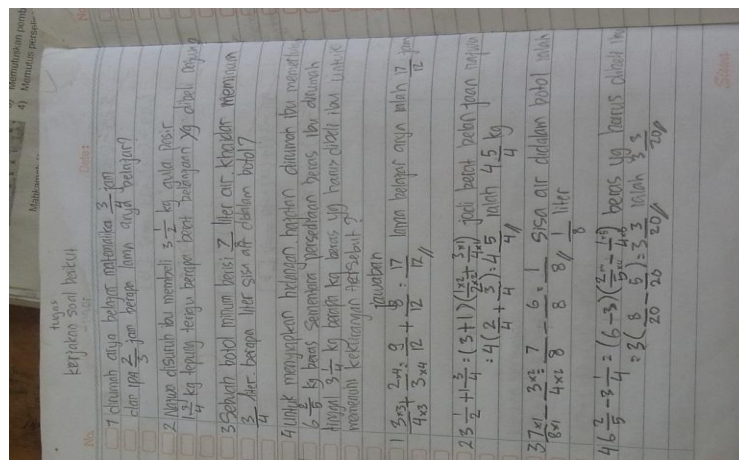 4) Memutus persel
No.
Date:
tugas
kerjakan soal berikut
1 dirumah arya belajar matematika 3/4 jam
dan IPA 2/3 jam berapa lama arya belajar?
2 Najwa disuruh ibu membeli 3 1/2 kg gula pasir
1 3/4 kg tepung terigu berapa berat belanjaan yg dibeli
3 Sebuah botol minum berisi 7/8 liter air. khaidar meminum
3/4 liter. berapa liter sisa air didalam botol?
4 untuk menyiapkan hidangan hajatan dirumah ibu
6 2/5 kg beras sementara persediaan beras ibu dirumah
tinggal 3 1/4 kg berapa kg beras yg harus dibeli ibu untuk
memenuhi kekurangan tersebut?
jawaban
1 3×3/4×3 + 2×4/3×4 = 9/12 + 8/12 = 17/12 lama belajar arya ialah 17/12 jam
2 3 1/2 + 1 3/4 = (3+1) (1×2/2×2 + 3×1/4×1) jadi berat belanjaan najwa
= 4 (2/4 + 3/4) = 4 5/4 ialah 4 5/4 kg
3 7×1/8×1 - 3×2/4×2 = 7/8 - 6/8 = 1/8 sisa air didalam botol ialah
1/8 liter
4 6 2/5 - 3 1/4 = (6-3) (2×4/5×4 - 1×5/4×5) beras yg harus dibeli ibu
= 3 (8/20 - 5/20) = 3 3/20 ialah 3 3/20